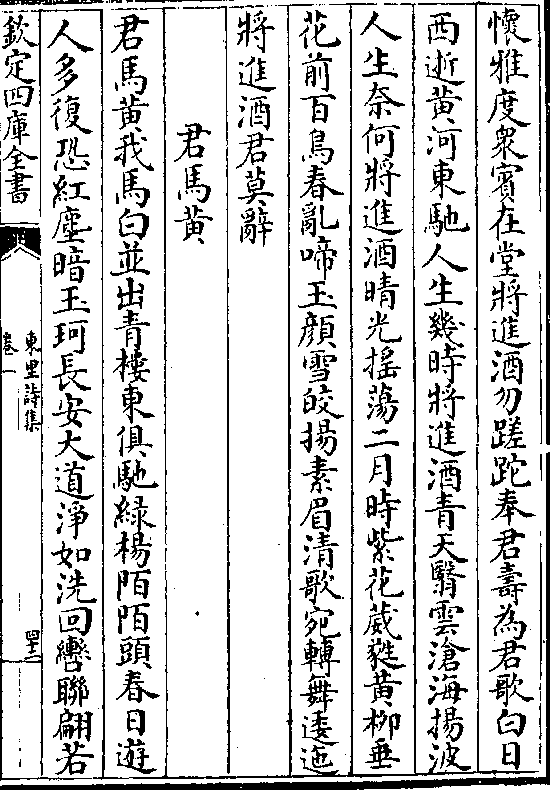 懷雅度衆賓在堂將進酒勿蹉跎奉君壽為君歌白日
西逝黄河東馳人生幾時將進酒青天翳雲滄海揚波
人生奈何將進酒晴光搖蕩二月時紫花葳蕤黄柳垂
花前百鳥春亂啼玉顔雪皎揚素眉清歌宛轉舞逶迤
將進酒君莫辭
君馬黄
君馬黄我馬白並出青樓東俱馳緑楊陌陌頭春日遊
人多復恐紅塵暗玉珂長安大道淨如洗回轡聯翩若
欽定四庫全書
東里詩集
卷一